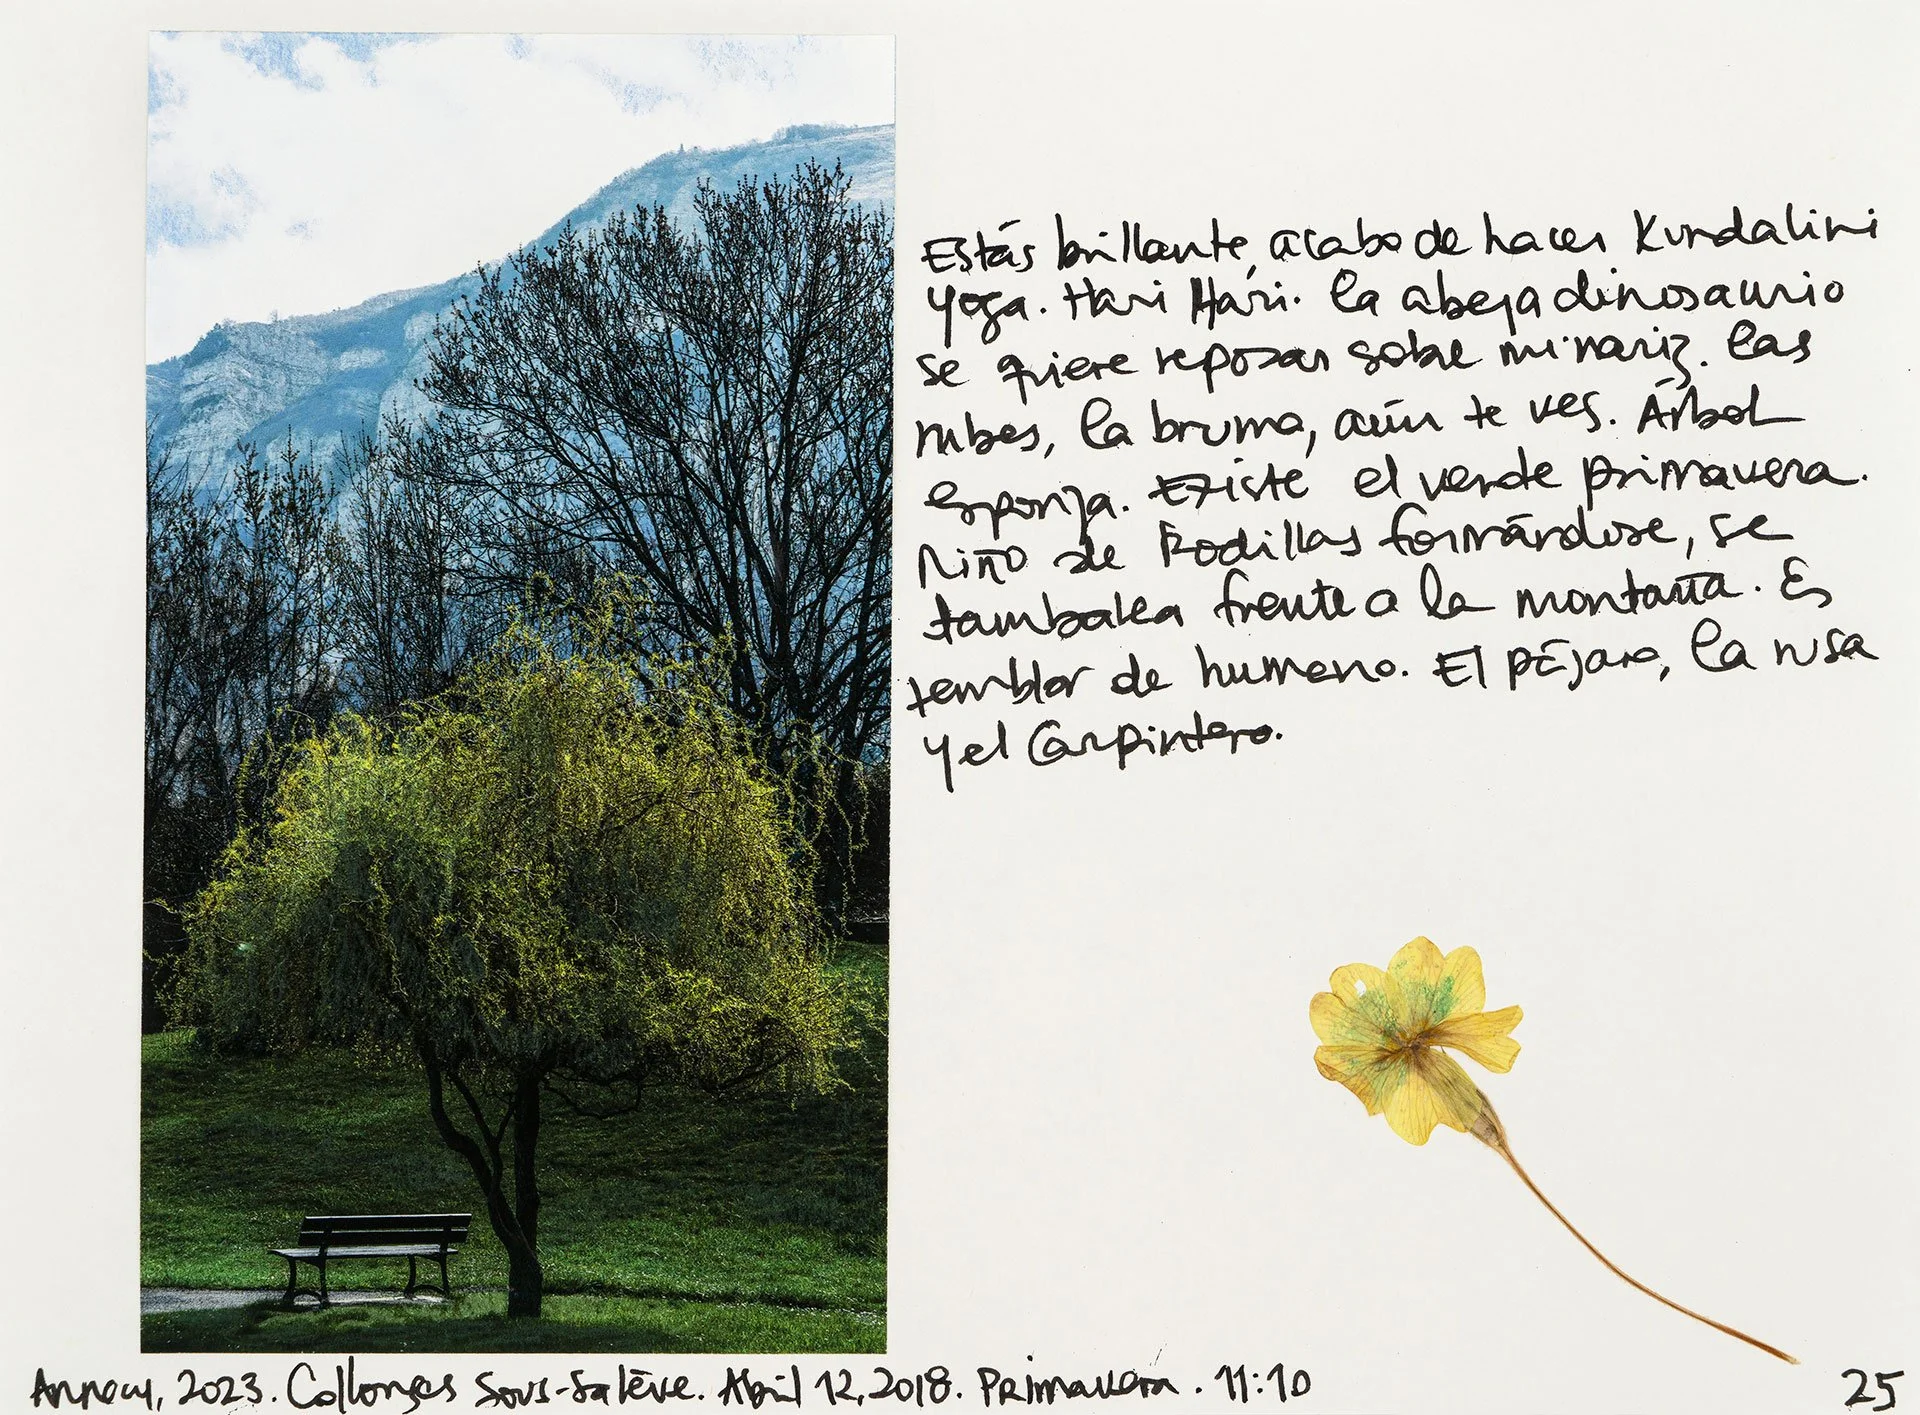 Estás brillante, acabo de hacer Kundalini
Yoga. Hari Hari. La abeja dinosaurio
se quiere reposar sobre mi nariz. Las
nubes, la bruma, aún te ves. Árbol
esponja. Existe el verde primavera.
Niño de Rodillas formándose, se
tambalea frente a la montaña. Es
temblor de humano. El pájaro, la rusa
y el Carpintero.
Annecy, 2023. Collonges Sous-Salève. Abril 12, 2018. Primavera. 11:10
25